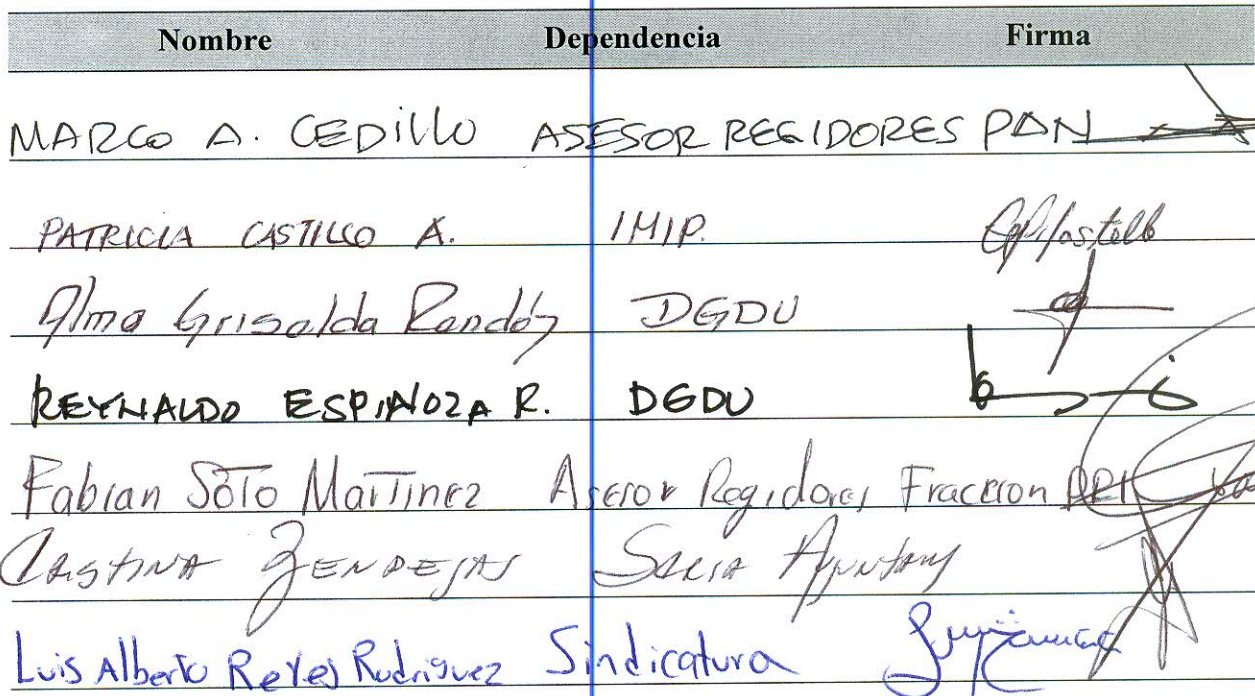 Nombre Dependencia Firma
MARCO A. CEDILLO ASESOR REGIDORES PAN
PATRICIA CASTILLO A. IMIP.
Alma Griselda Rendón DGDU
REYNALDO ESPINOZA R. DGDU
Fabian Soto Martinez Asesor Regidores Fraccion PRI
CRISTINA ZENDEJAS SRIA
Luis Alberto Reyes Rodriguez Sindicatura